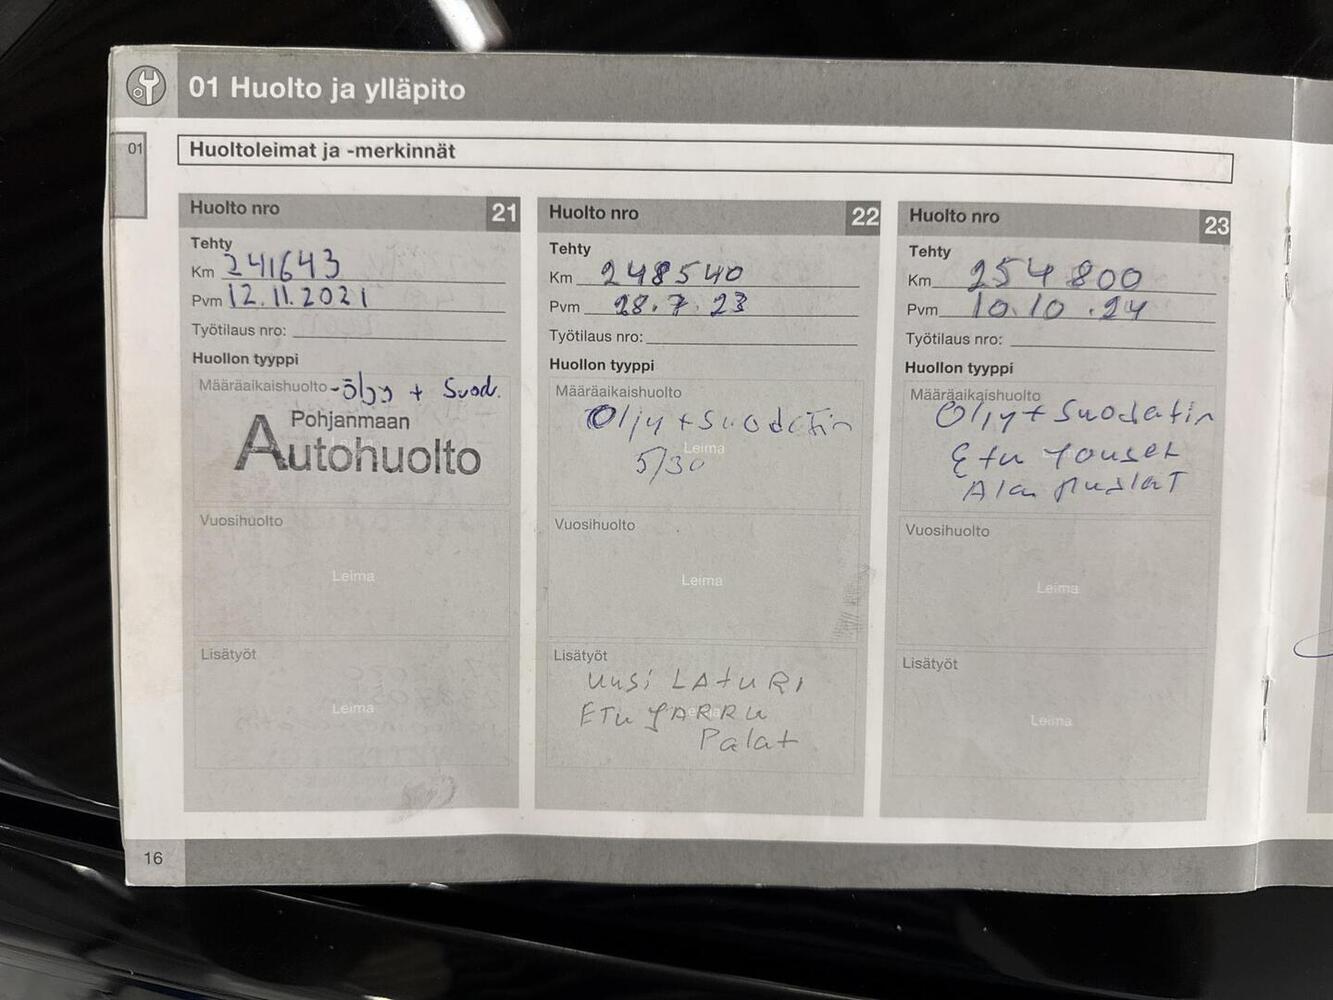 01 Huolto ja ylläpito
01
Huoltoleimat ja -merkinnät
Huolto nro 21
Tehty
Km 241643
Pvm 12.11.2021
Työtilaus nro:
Huollon tyyppi
Määräaikaishuolto -öljy + Suod.
Pohjanmaan
Autohuolto
Vuosihuolto
Leima
Lisätyöt
Leima
Huolto nro 22
Tehty
Km 248540
Pvm 28.7.23
Työtilaus nro:
Huollon tyyppi
Määräaikaishuolto
Öljy + Suodatin
Leima
5/30
Vuosihuolto
Leima
Lisätyöt
Uusi LAtuRi
ETu JARRu
Palat
Huolto nro 23
Tehty
Km 254800
Pvm 10.10.24
Työtilaus nro:
Huollon tyyppi
Määräaikaishuolto
Öljy + Suodatin
Etu Jouset
Ala PuslaT
Vuosihuolto
Leima
Lisätyöt
Leima
16